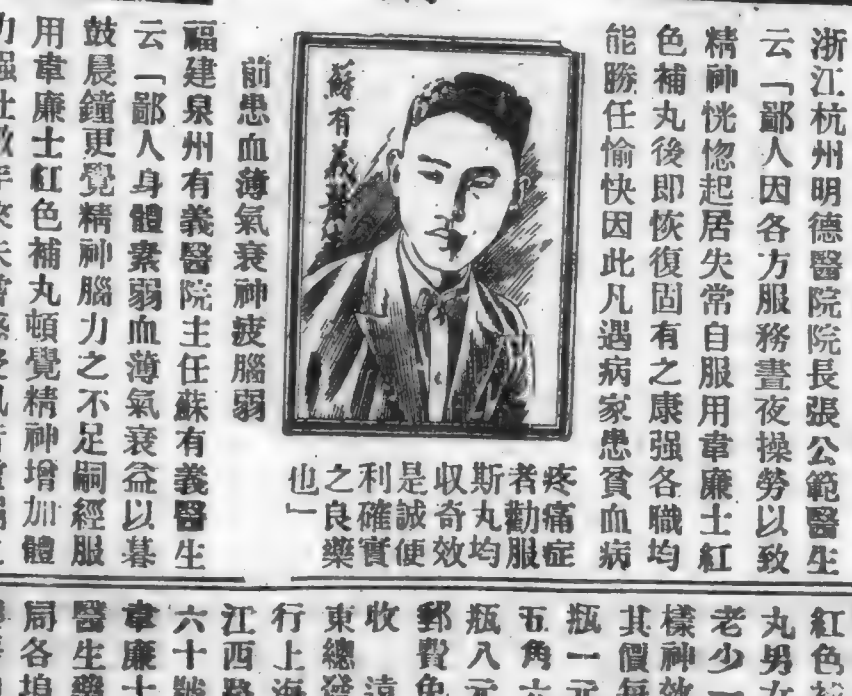 浙江杭州明德醫院院長張公範醫生
云「鄙人因各方服務晝夜操勞以致
精神恍惚起居失常自服用韋廉士紅
色補丸後即恢復固有之康强各職均
能勝任愉快因此凡遇病家患貧血病
疼痛症
者勸服
斯丸均
收奇效
是誠便
利確實
之良藥
也」
蘇有義醫生
前患血薄氣衰神疲腦弱
福建泉州有義醫院主任蘇有義醫生
云「鄙人身體素弱血薄氣衰益以暮
鼓晨鐘更覺精神腦力之不足嗣經服
用韋廉士紅色補丸頓覺精神增加體
力强壯
紅色
丸男
老少
樣神效
其價每
瓶一元
五角六
瓶八元
郵費免
收 遠
東總發
行上海
江西路
六十號
韋廉士
醫生藥
局各埠